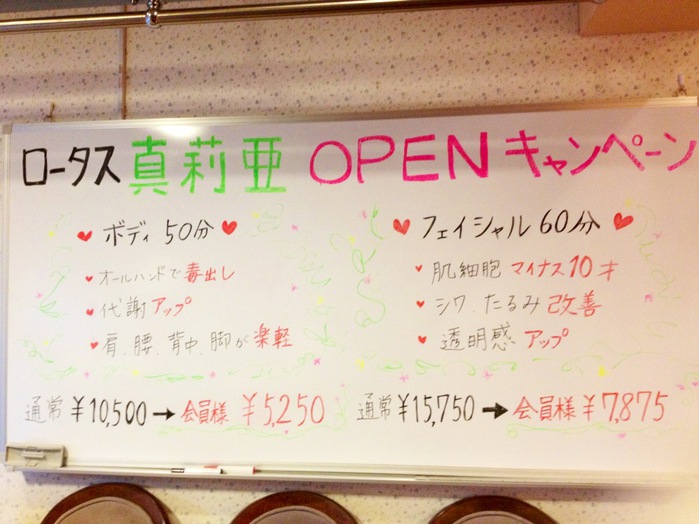 ロータス 真莉亜 OPEN キャンペーン
ボディ 50分
オールハンドで毒出し
代謝アップ
肩、腰、背中、脚が楽軽
通常 ¥10,500→会員様 ¥5,250
フェイシャル 60分
肌細胞 マイナス10才
シワ、たるみ改善
透明感 アップ
通常 ¥15,750→会員様 ¥7,875